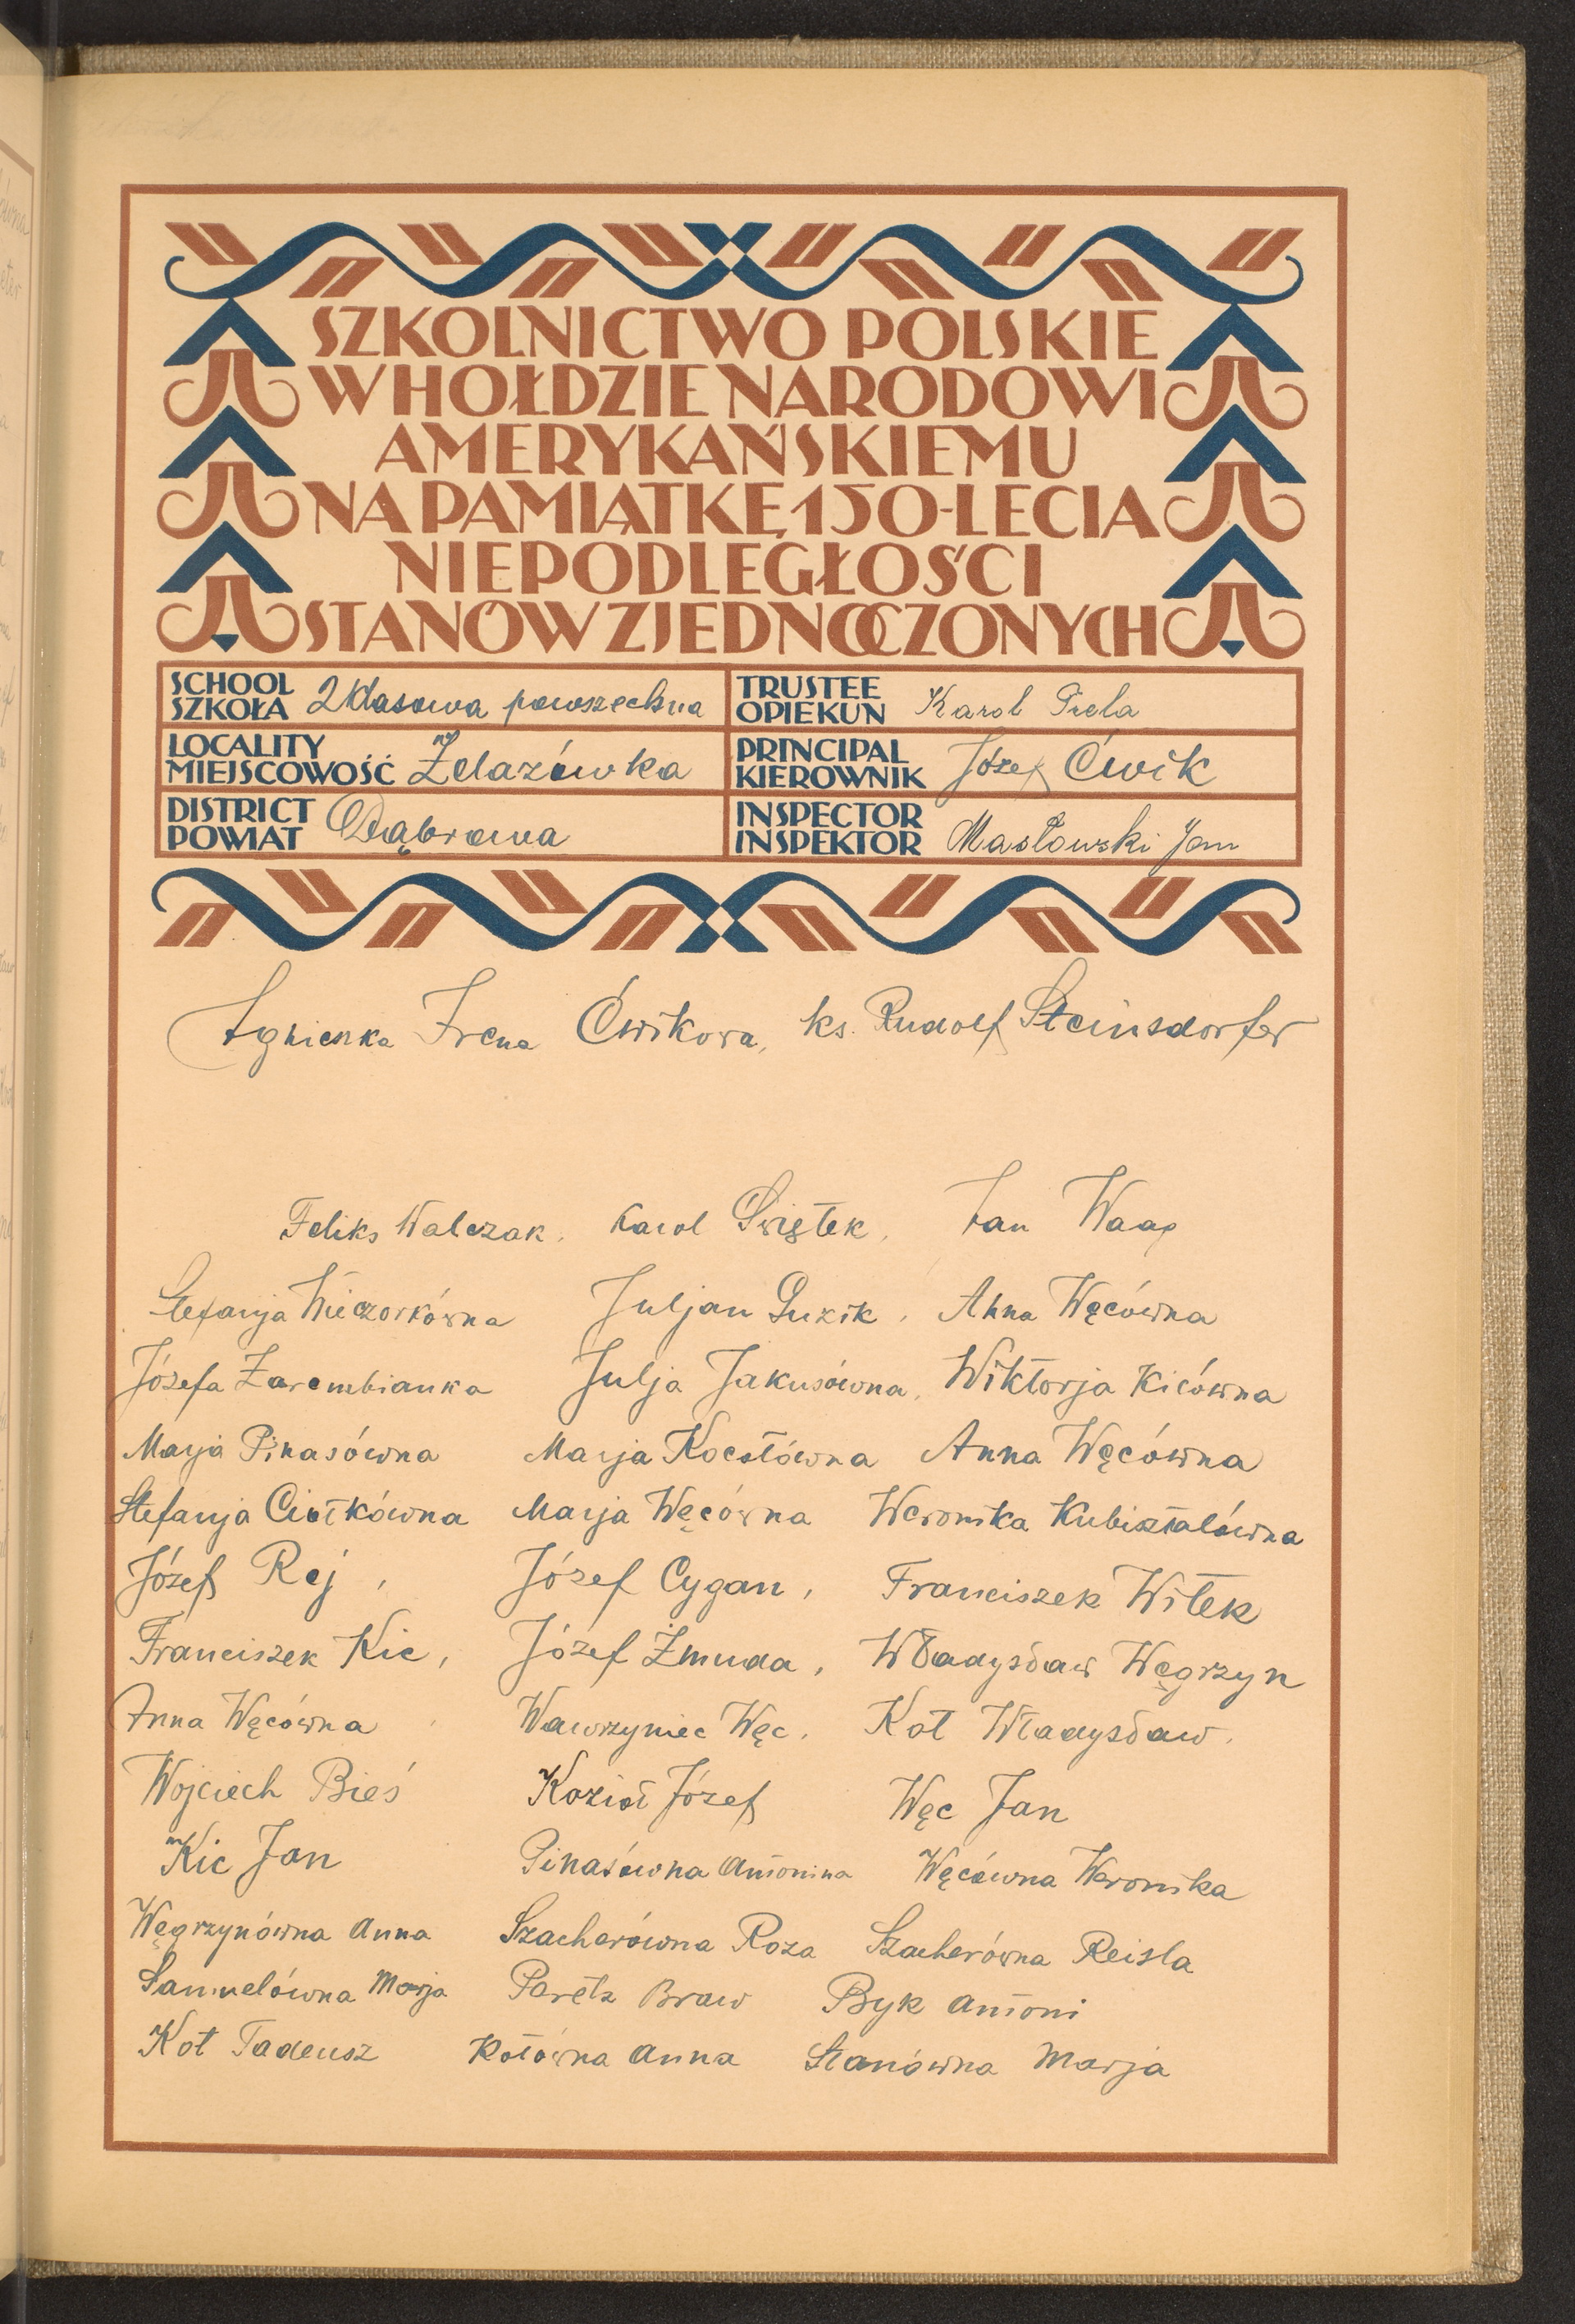 SZKOLNICTWO POLSKIE
W HOŁDZIE NARODOWI
AMERYKAŃSKIEMU
NA PAMIĄTKĘ 150-LECIA
NIEPODLEGŁOŚCI
STANÓW ZJEDNOCZONYCH
SCHOOL
SZKOŁA 2 klasowa powszechna
TRUSTEE
OPIEKUN Karol Piela
LOCALITY
MIEJSCOWOŚĆ Żelazówka
PRINCIPAL
KIEROWNIK Józef Ćwik
DISTRICT
POWIAT Dąbrowa
INSPECTOR
INSPEKTOR Masłowski Jan
Agnieszka Irena Ćwikowa, ks. Rudolf Steinsdorfer
Feliks Walczak, Karol Świętek, Jan Waag
Stefanja Wieczorkówna Juljan Guzik, Anna Węcówna
Józefa Zarembianka Julja Jakusówna, Wiktorja Kicówna
Marja Pinasówna Marja Kocołówna Anna Węcówna
Stefanja Ciołkówna Marja Węcówna Weronika Kubisztalówna
Józef Rej, Józef Cygan, Franciszek Witek
Franciszek Kic, Józef Żmuda, Władysław Węgrzyn
Anna Węcówna Wawrzyniec Węc, Kot Władysław,
Wojciech Bieś Kozioł Józef Węc Jan
Kic Jan Pinasówna Antonina Węcówna Weronika
Węgrzynówna Anna Szacherówna Roza Szacherówna Reisla
Samuelówna Marja Paretz Braw Byk Antoni
Kot Tadeusz Kotówna Anna Stanówna Marja